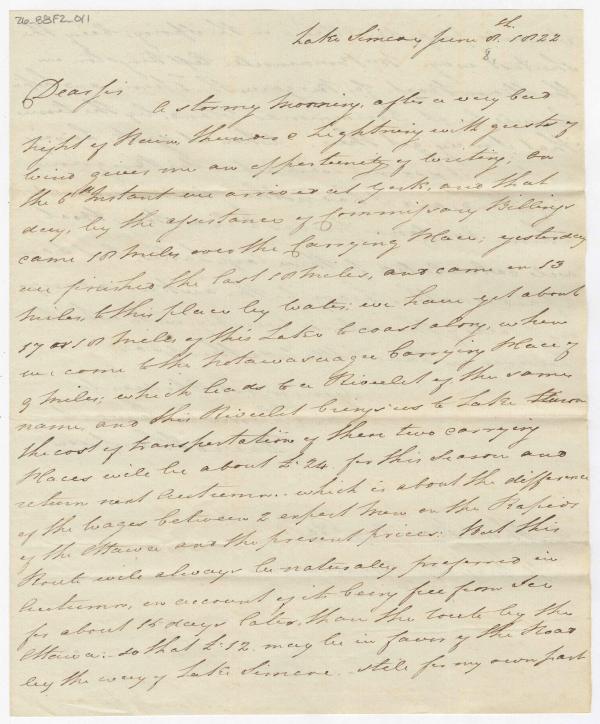 76_88F2_011
Lake Simcoe, June 8th. 1822
8
Dear Sir
A stormy morning, after a very bad
night of Rain, thunder & Lightning with gusts of
wind gives me an opportunity of writing; on
the 6th Instant we arrived at York, and that
day, by the assistance of Commissary Billings
came 18 miles over the Carrying Place; yesterday
we finished the last 18 miles, and came on 13
miles to this place by water: we have yet about
17 or 18 miles of this Lake to coast along, when
we come to the Notawasauga Carrying Place of
9 miles; which leads to a Rivulet of the same
name, and this Rivulet brings us to Lake Huron
the cost of transportation of these two carrying
Places will be about £24. for this Season and
return next Autumn.. which is about the difference
of the wages between 2 expert men on the Rapids
of the Ottawa and the present prices: But this
Route will always be naturally preferred in
Autumn, on account of its being free from Ice
for about 15 days later, than the route by the
Ottawa:- so that £12 may be in favor of the Road
by the way of Lake Simcoe. still for my own part